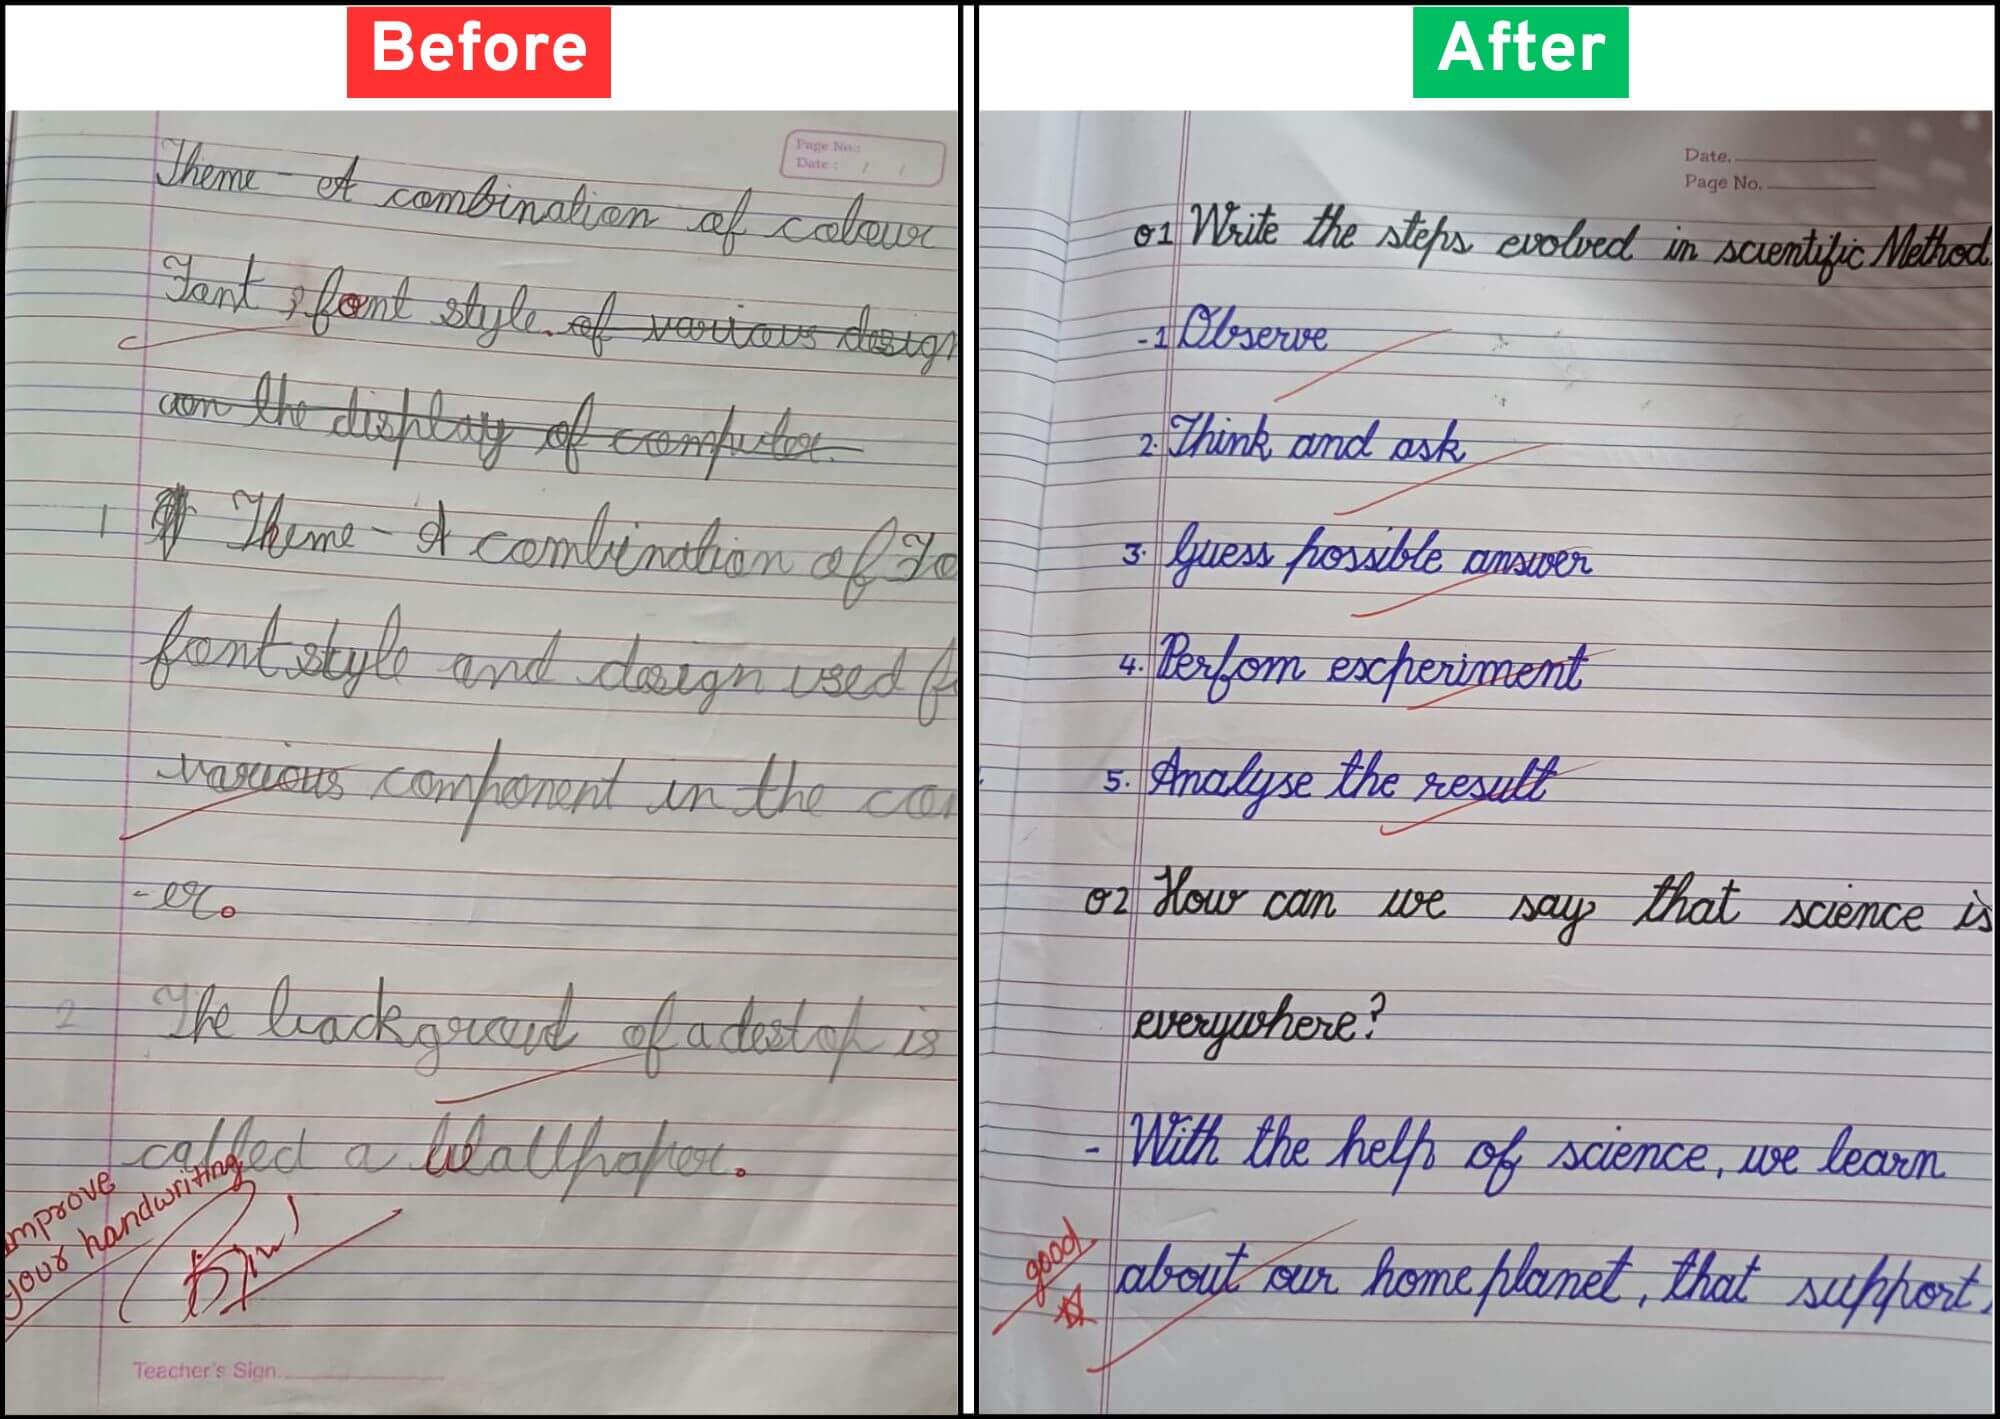 Before
Page No.:
Date : / /
Theme - A combination of colour
Font , font style. of various design
on the display of computer.
1 Theme - A combination of Fo
font style and design used f
various component in the com
- er.
2 The background of a destop is
called a Wallpaper.
improve
your handwriting
Teacher's Sign
After
Date.
Page No.
Q1 Write the steps evolved in scientific Method.
- 1 Observe
2. Think and ask
3. Guess possible answer
4. Perfom experiment
5. Analyse the result
Q2 How can we say that science is
everywhere?
- With the help of science, we learn
good
about our home planet, that support